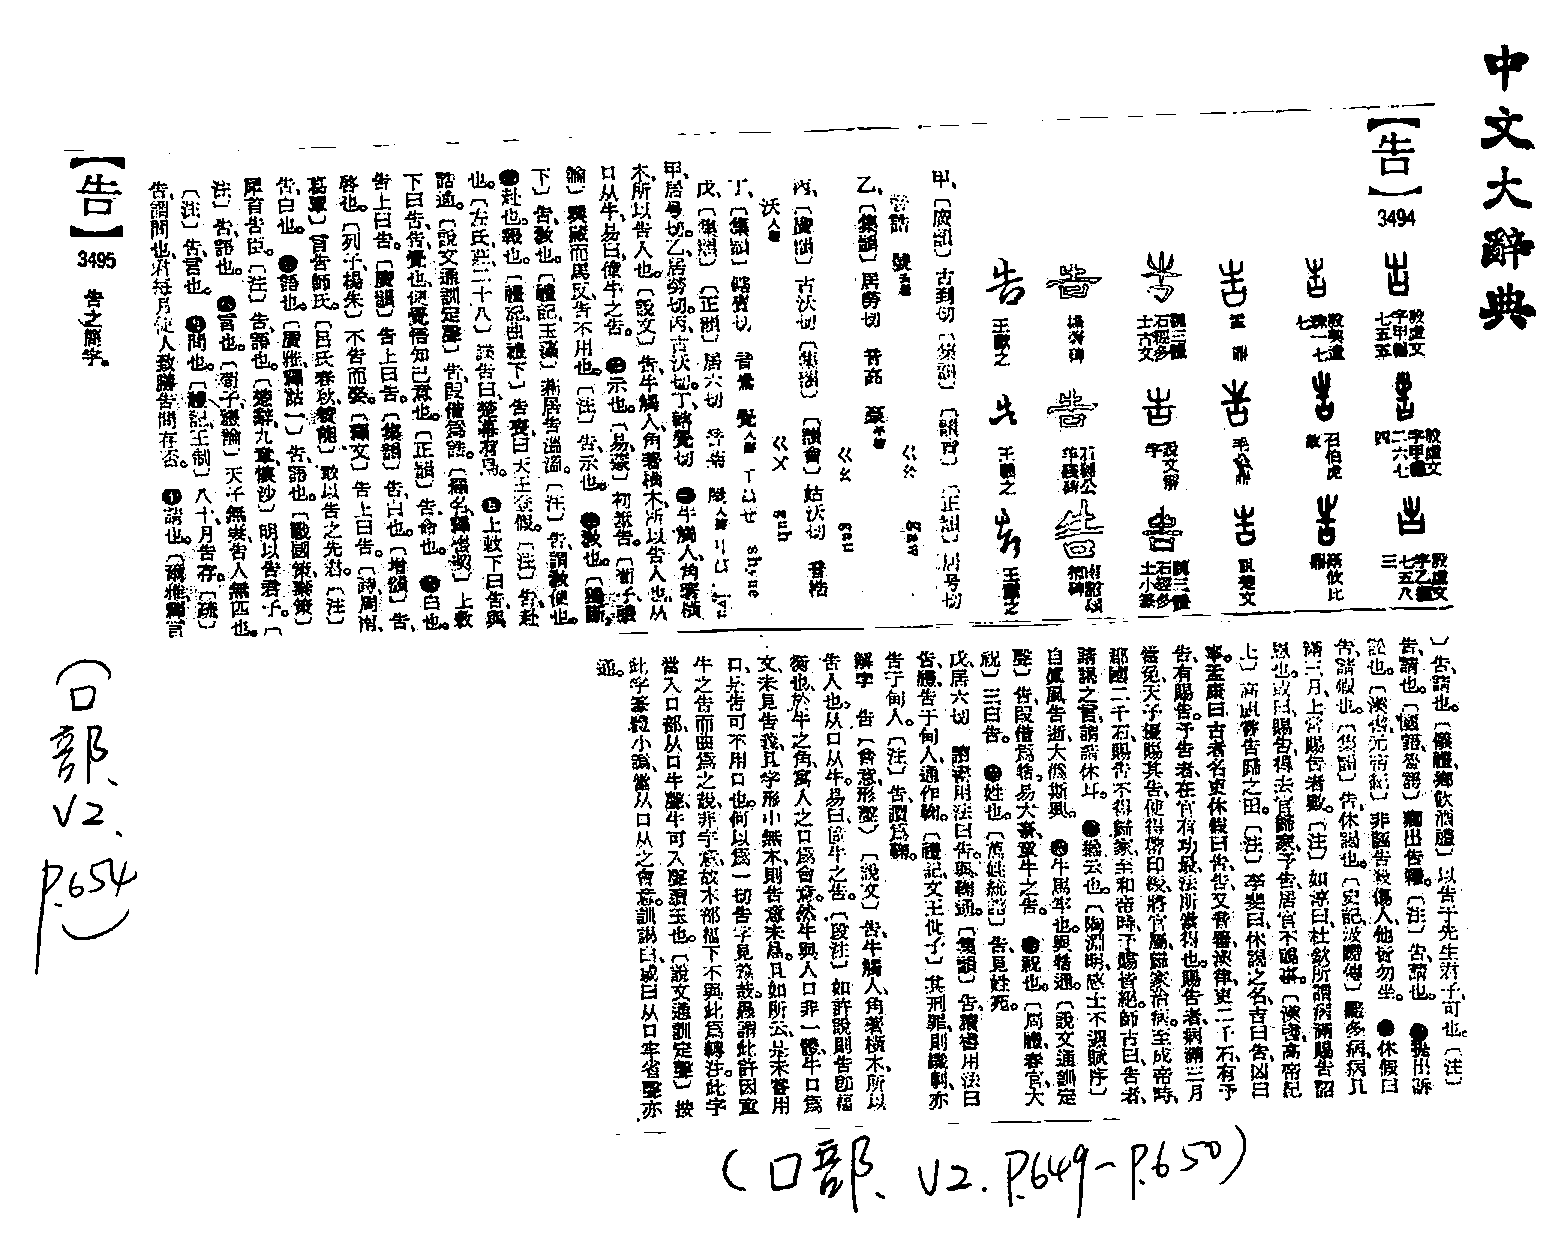 中文大辭典
【告】
3494
殷虛文
字甲編
七五五
殷虛文
字甲編
二六七
四
殷虛文
字乙編
七五八
三
石伯虎
𣪘
盂鼎
毛公鼎
詛楚文
魏三體
石經多
士古文
說文解
字
魏三體
石經多
士小篆
楊著碑
王獻之
王羲之
王獻之
甲、〔廣韻〕古到切〔集韻〕〔韻會〕〔正韻〕居号切
音誥 號去聲
ㄍㄠ gaw
乙、〔集韻〕居勞切 音高 豪平聲
ㄍㄠ gau
丙、〔廣韻〕古沃切〔集韻〕〔韻會〕姑沃切 音梏
沃入聲
ㄍㄨ guh
丁、〔集韻〕轄覺切 音鷽 覺入聲 ㄒㄩㄝ shyue
戊、〔集韻〕〔正韻〕居六切
甲、居号切。乙、居勞切。丙、古沃切。丁、轄覺切 ㊀牛觸人、角著橫
木、所以告人也。〔說文〕告、牛觸人、角著橫木、所以告人也、从
口从牛、易曰、僮牛之告。㊁示也。〔易、蒙〕初筮告。〔荀子、禮
論〕輿藏而馬反、告不用也。〔注〕告、示也。㊂敎也。〔國語、
下〕告、敎也。〔禮記、玉藻〕燕居告溫溫。〔注〕告、謂敎使也。
赴也、報也。〔禮記、曲禮下〕告喪曰、天王登假。〔注〕告、赴
也。〔左氏、莊、二十八〕諜告曰、楚幕有烏。㊄上敕下曰告、與
誥通。〔說文通訓定聲〕告、叚借爲誥。〔釋名、釋書契〕上敕
下曰告、告、覺也、使覺悟知己意也。〔正韻〕告、命也。㊅白也。
告上曰告。〔廣韻〕告上曰告。〔集韻〕告、白也。〔增韻〕告、
啓也。〔列子、楊朱〕不告而娶。〔釋文〕告上曰告。〔詩、周南、
葛覃〕言告師氏。〔呂氏春秋、贊能〕敢以告之先君。〔注〕
告、白也。㊆語也。〔廣雅、釋詁一〕告、語也。〔戰國策、秦策〕
犀首告臣。〔注〕告、語也。〔楚辭、九章、懷沙〕明以告君子。〔
注〕告、語也。㊇言也。〔荀子、禮論〕天子無衆、告人無匹也。
〔注〕告、言也。㊈問也。〔禮記、王制〕八十、月告存。〔疏〕
告、謂問也、君每月使人致膳告問存否。㊉請也。〔爾雅、釋言
〕告、請也。〔儀禮、鄉飲酒禮〕以告于先生君子可也。〔注〕
告、請也。〔國語、魯語〕國出告糴。〔注〕告、請也。
訟也。〔漢書、元帝紀〕非誣告殺傷人、他皆勿坐。休假曰
告、請假也。〔集韻〕告、休謁也。〔史記、汲黯傳〕黯多病、病且
滿三月、上常賜告者數。〔注〕如淳曰、杜欽所謂病滿賜告詔
恩也。或曰、賜告、得去官歸家、予告、居官不視事。〔漢書、高帝紀
上〕高祖嘗告歸之田。〔注〕李斐曰、休謁之名、吉曰告、凶曰
寧。孟康曰、古者名吏休假曰告、告又音嚳、漢律、吏二千石、有予
告、有賜告。予告者、在官有功最、法所當得也。賜告者、病滿三月
當免、天子優賜其告、使得帶印綬、將官屬歸家治病。至成帝時、
郡國二千石賜告不得歸家、至和帝時、予賜皆絕。師古曰、告者、
請謁之言、謂請休耳。〔陶淵明、感士不遇賦序〕
自眞風告逝、大僞斯興。牛馬牢也。與牿通。〔說文通訓定
聲〕告、叚借爲牿、易大畜、童牛之告。祝也。〔周禮、春官、大
祝〕三曰告。姓也。〔萬姓統譜〕告、見姓苑。
戊、居六切 讀書用法曰告。與鞠通。〔集韻〕告、讀書用法曰
告、禮、告于甸人、通作鞠。〔禮記、文王世子〕其刑罪、則纖剸、亦
告于甸人。〔注〕告、讀爲鞠。
解字 告〔會意形聲〕〔說文〕告、牛觸人、角著橫木、所以
告人也、从口从牛。易曰、僮牛之告。〔段注〕如許說、則告卽楅
衡也、於牛之角寓人之口爲會意、然牛與人口非一體、牛口爲
文、未見告義、且字形中無木、則告意未顯、且如所云、是未嘗用
口、是告可不用口也、何以爲一切告字見義哉。愚謂此許因童
牛之告而曲爲之說、非字意、故木部楅下不與此爲轉注。此字
當入口部、从口牛聲、牛可入聲讀玉也。〔說文通訓定聲〕按、
此字篆體小譌、當从口从之、會意、訓謁白、或曰从口、牢省聲、亦
通。
(口部、V2. P.649－P.650)
【告】
3495
告之簡字。
(口部、V2. P.654)